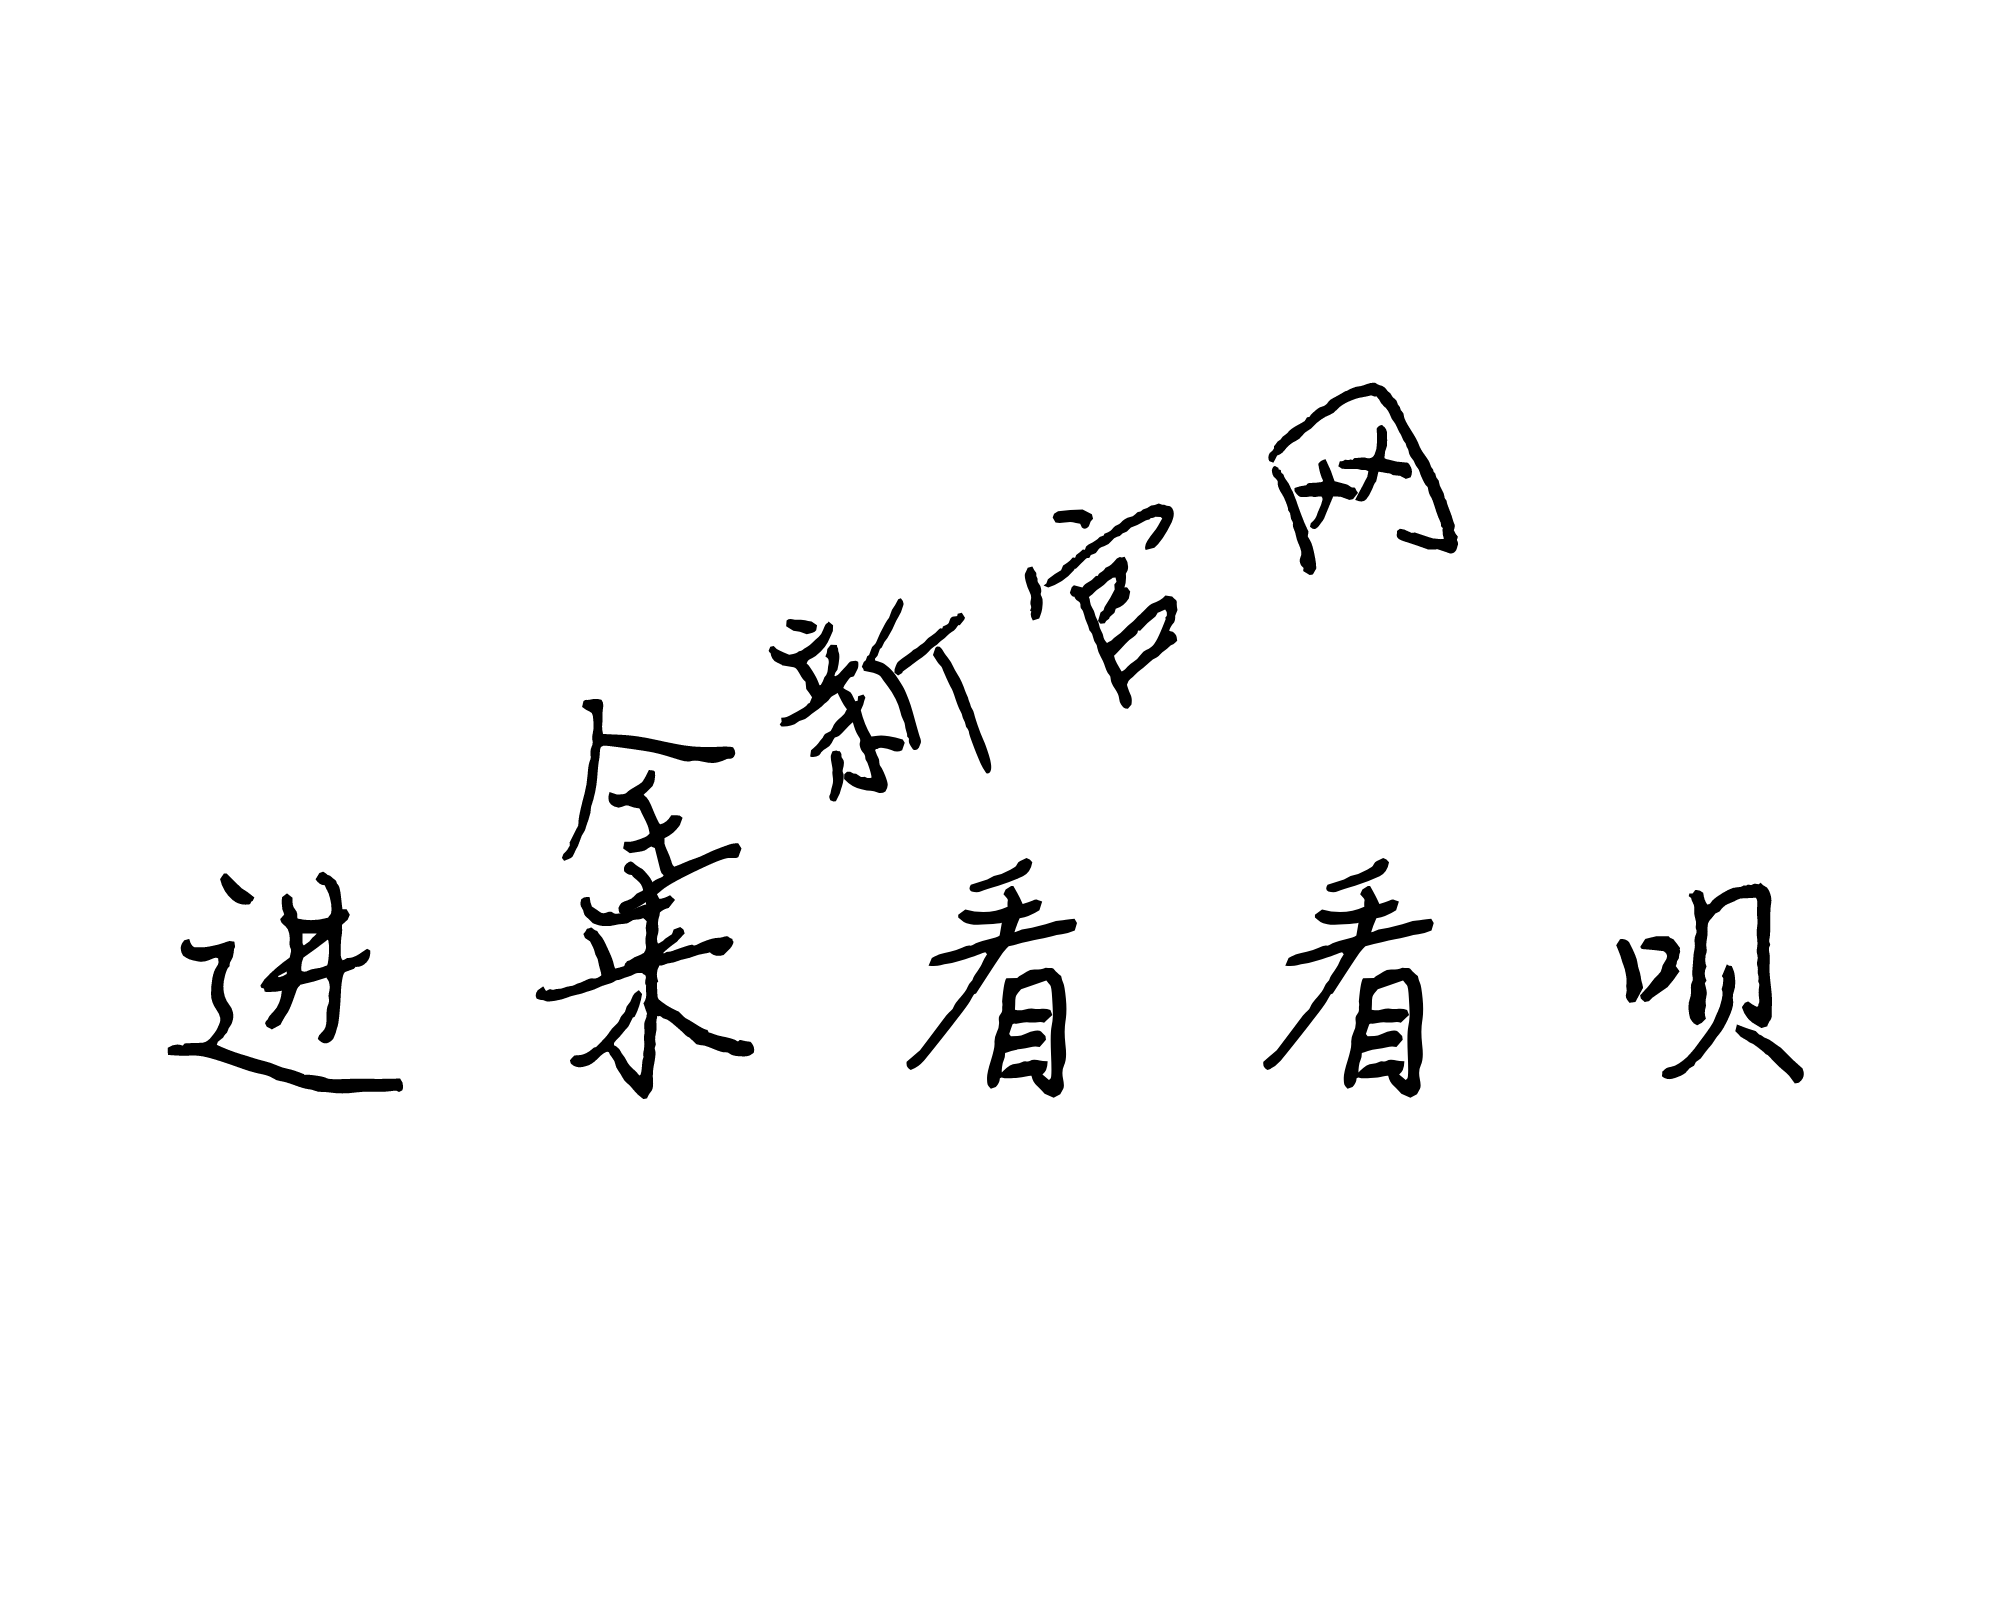 全新官网
进来看看呗